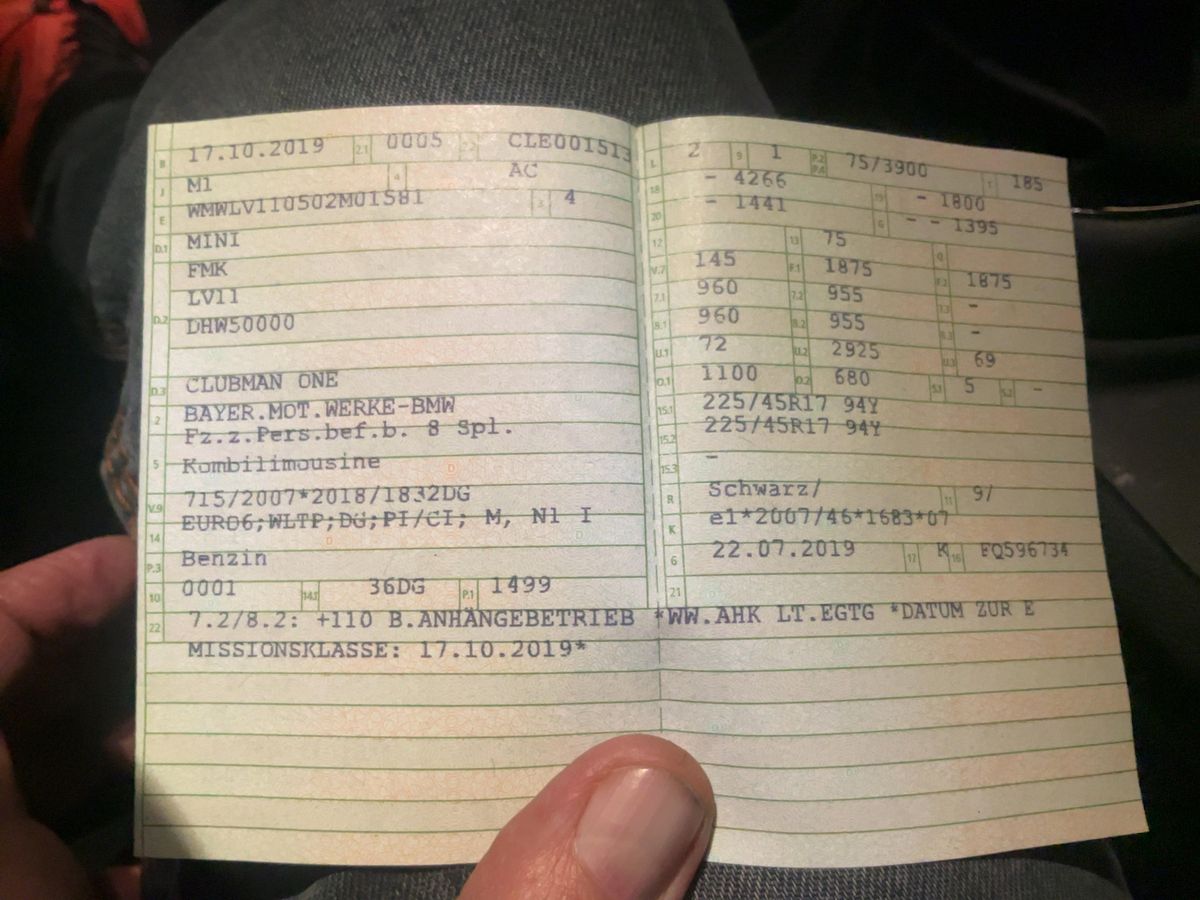 B 17.10.2019 2.1 0005 2.2 CLE001513
J M1 4 AC
E WMWLV110502M01581 3 4
D.1 MINI
FMK
D.2 LV11
DHW50000
D.3 CLUBMAN ONE
2 BAYER.MOT.WERKE-BMW
5 Fz.z.Pers.bef.b. 8 Spl.
Kombilimousine
V.9 715/2007*2018/1832DG
14 EURO6;WLTP;DG;PI/CI; M, N1 I
P.3 Benzin
10 0001 14.1 36DG P.1 1499
L 2 9 1 P.2 P.4 75/3900 T 185
18 - 4266 19 - 1800
20 - 1441 G - - 1395
12 13 75 Q
V.7 145 F.1 1875 F.2 1875
7.1 960 7.2 955 7.3 -
8.1 960 8.2 955 8.3 -
U.1 72 U.2 2925 U.3 69
O.1 1100 O.2 680 S.1 5 S.2 -
15.1 225/45R17 94Y
15.2 225/45R17 94Y
15.3 -
R Schwarz/ 11 9/
K e1*2007/46*1683*07
6 22.07.2019 17 K 16 FQ596734
21
22 7.2/8.2: +110 B.ANHÄNGEBETRIEB *WW.AHK LT.EGTG *DATUM ZUR E
MISSIONSKLASSE: 17.10.2019*